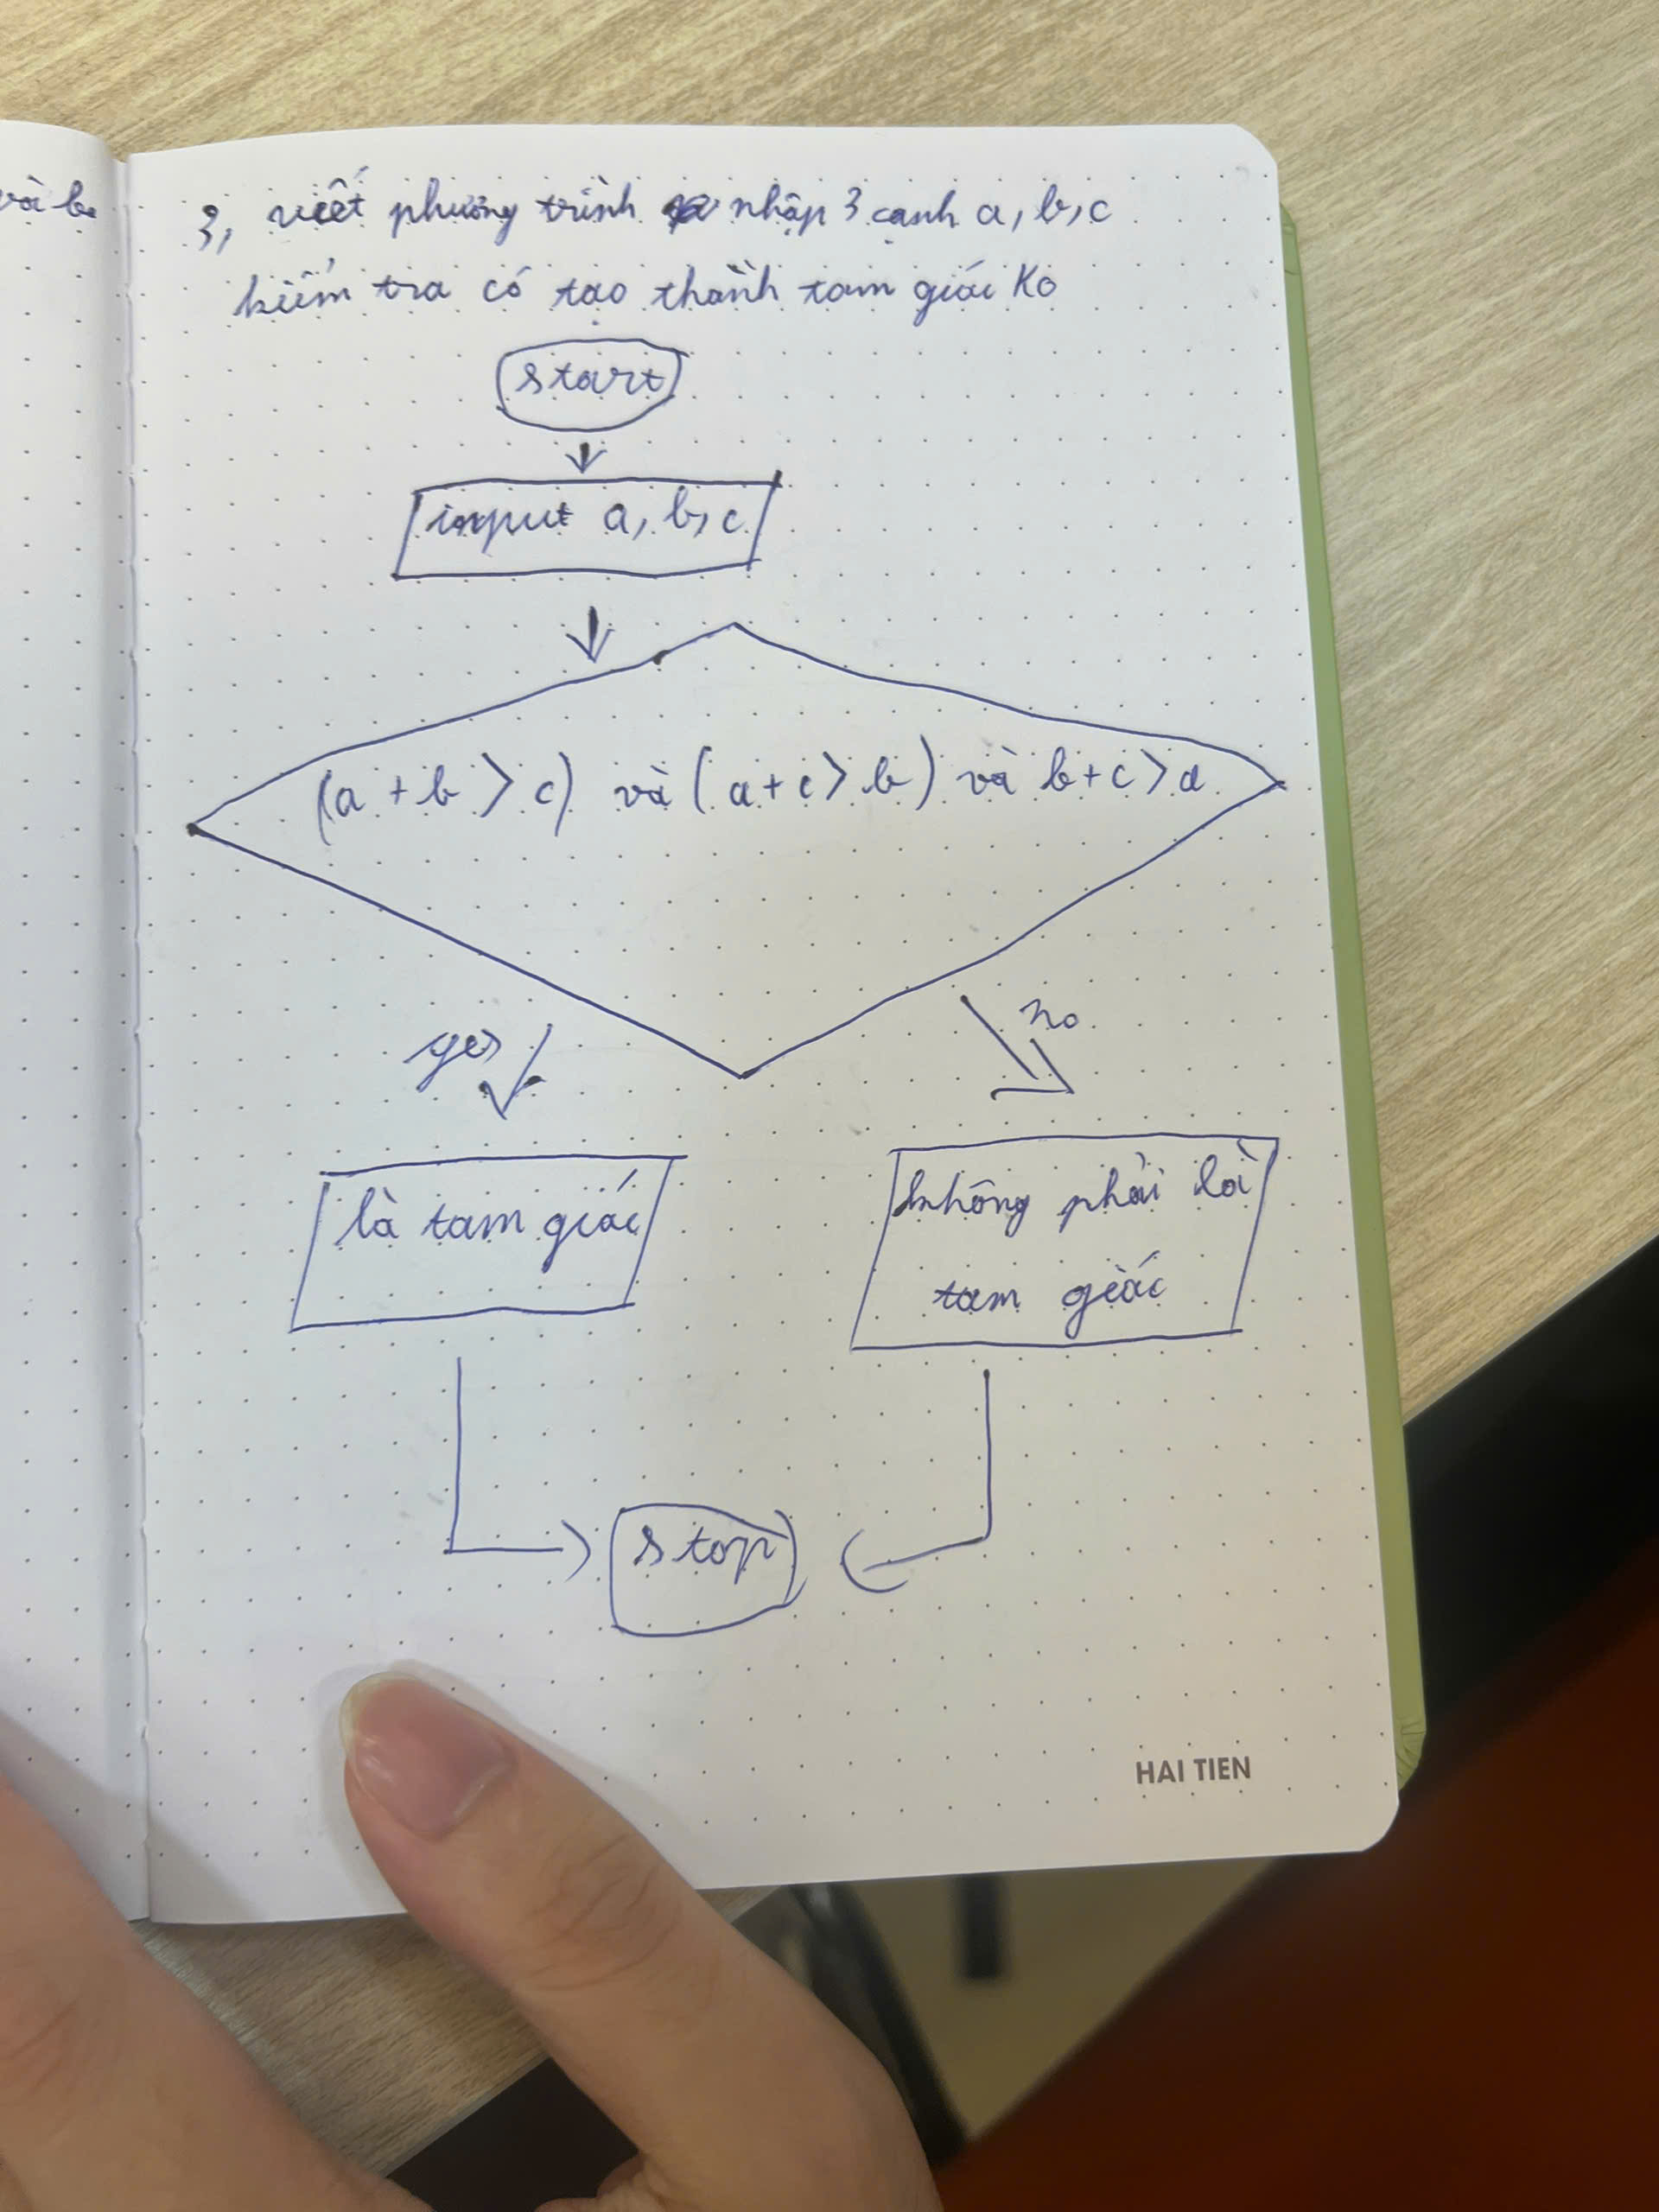 và b
3, viết phương trình nhập 3 cạnh a, b, c
kiểm tra có tạo thành tam giác ko
start
input a, b, c
(a + b > c) và (a + c > b) và b + c > a
yes
no
là tam giác
không phải là
tam giác
stop
HAI TIEN